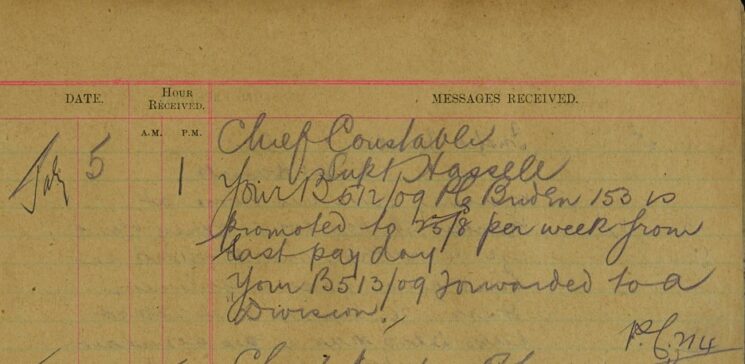 DATE. HOUR RECEIVED. MESSAGES RECEIVED.
A.M. P.M.
July 5 1 Chief Constable
Supt Hassell
Your B512/09 PC Burden 153 is
promoted to 25/8 per week from
last pay day
Your B513/09 forwarded to a
Division.
P.C. 214